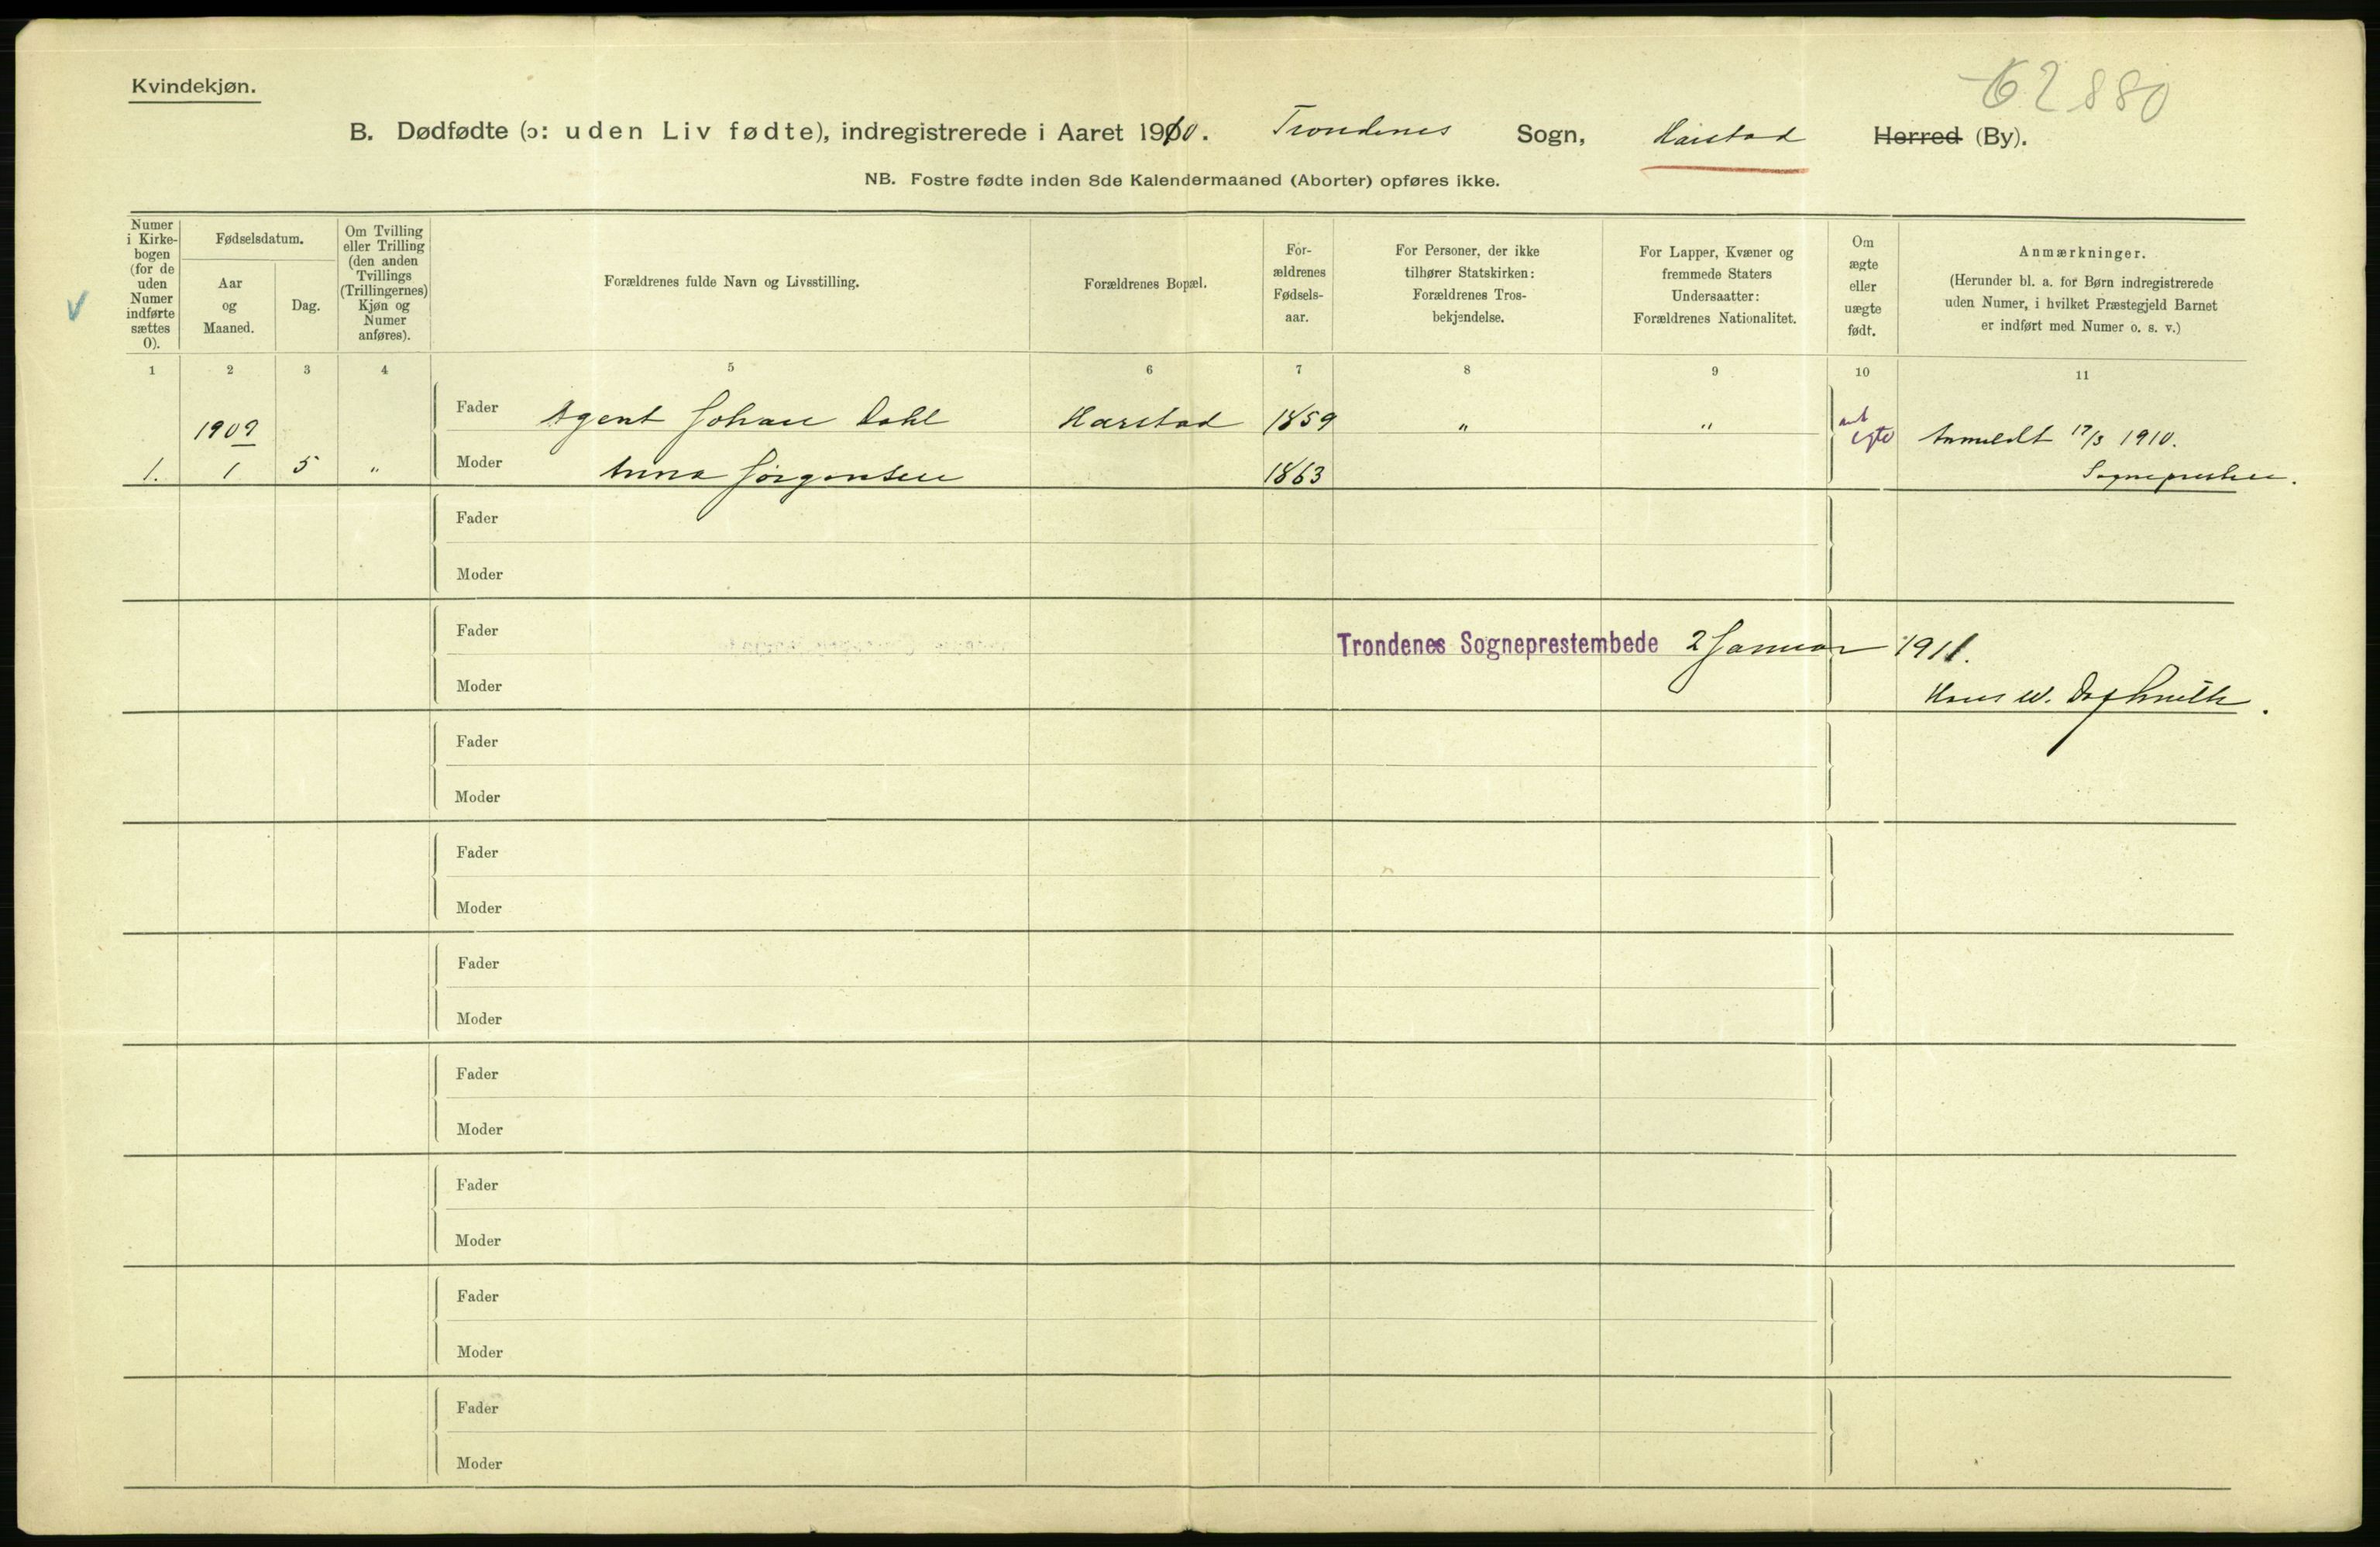 62880
Kvindekjøn.
B. Dødfødte (ɔ: uden Liv fødte), indregistrerede i Aaret 1910. Trondenes Sogn, Harstad Herred (By).
NB. Fostre fødte inden 8de Kalendermaaned (Aborter) opføres ikke.
Numer i Kirke-bogen (for de uden Numer indførte sættes 0).
Fødselsdatum.
Aar og Maaned.
Dag.
Om Tvilling eller Trilling (den anden Tvillings (Trillingernes) Kjøn og Numer anføres).
Forældrenes fulde Navn og Livsstilling.
Forældrenes Bopæl.
For-ældrenes Fødsels-aar.
For Personer, der ikke tilhører Statskirken: Forældrenes Tros-bekjendelse.
For Lapper, Kvæner og fremmede Staters Undersaatter: Forældrenes Nationalitet.
Om ægte eller uægte født.
Anmærkninger.
(Herunder bl. a. for Børn indregistrerede uden Numer, i hvilket Præstegjeld Barnet er indført med Numer o. s. v.)
1 2 3 4 5 6 7 8 9 10 11
1909 Fader Agent Johan Dahl Harstad 1859 " " egte Anmeldt 17/3 1910.
1. 1 5 " Moder Anna Jørgensen 1863 Sognepresten.
Fader
Moder
Fader Trondenes Sogneprestembede 2 Januar 1911.
Moder Hans W.
Fader
Moder
Fader
Moder
Fader
Moder
Fader
Moder
Fader
Moder
Fader
Moder
Fader
Moder